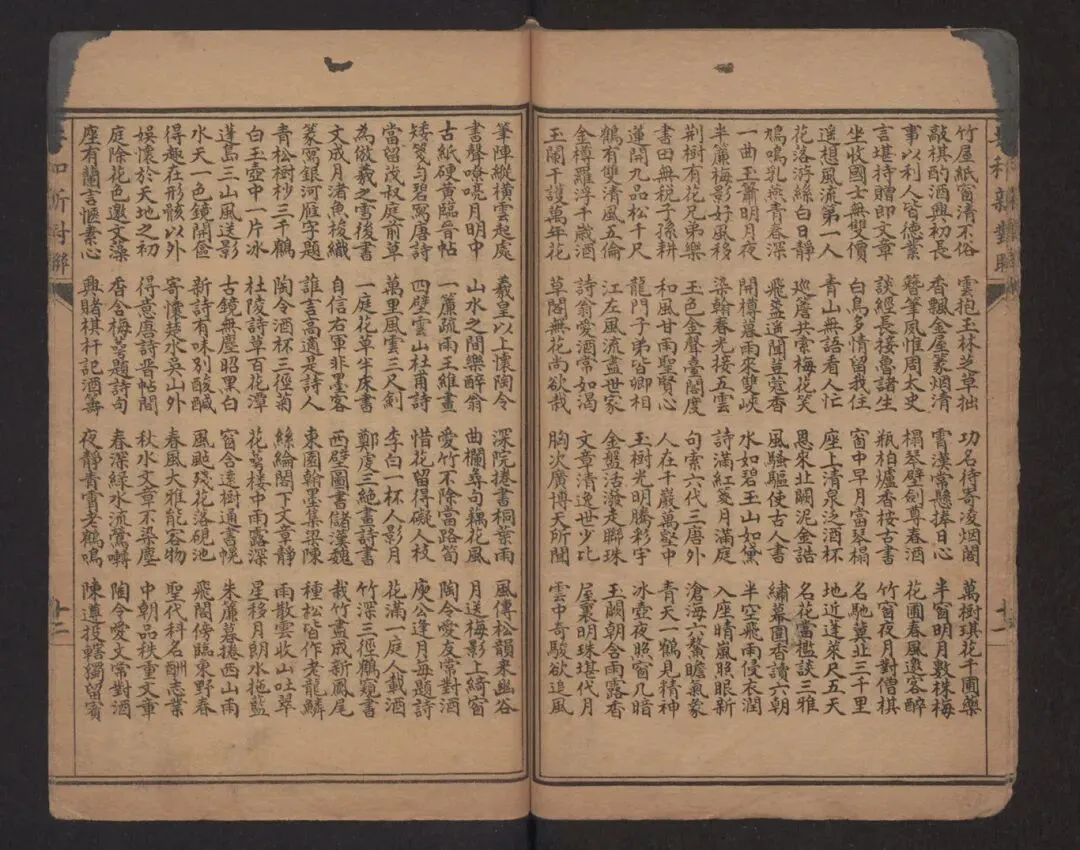 竹屋紙窗清不俗
敲棋酌酒興初長
事以利人皆德業
言堪持贈即文章
坐收國士無雙價
遥想風流第一人
花落游絲白日靜
鳩鳴乳燕青春深
一曲玉簫明月夜
半簾梅影好風移
荆樹有花兄弟樂
書田無稅子孫耕
蓮開九品松千尺
鶴有雙清風五倫
金樽羅浮千歲酒
玉闌干護萬年花
雲抱玉林芝草拙
香飄金屋篆烟清
簪筆風惟周太史
談經長接魯諸生
白鳥多情留我住
青山無語看人忙
巡簷共索梅花笑
飛盞遥聞荳蔻香
開樽暮雨來雙峽
染翰春光接五雲
玉色金聲臺閣度
和風甘雨聖賢心
龍門子弟皆卿相
江左風流盡世家
詩翁愛酒常如渴
草閣無花尚欲栽
功名待寄凌烟閣
霄漢常懸捧日心
榻琴壁劍尊春酒
瓶柏爐香按古書
窗中早月當琴榻
座上清泉泛酒杯
恩來北闕泥金誥
風騷驅使古人書
水如碧玉山如黛
詩滿紅箋月滿庭
句索六代三唐外
人在千巖萬壑中
玉樹光明騰彩宇
金盤活潑走聯珠
文章清逸世少比
胸次廣博天所開
萬樹琪花千圃藥
半窗明月數株梅
花圃春風邀客醉
竹窗夜月對僧棋
名馳冀北三千里
地近蓬萊尺五天
名花當檻談三雅
繡幕圍香讀六朝
半空飛雨侵衣潤
入座晴嵐照眼新
滄海六鰲瞻氣象
青天一鶴見精神
冰壺夜照窗几暗
玉闕朝含雨露香
屋裏明珠堪代月
雲中奇駿欲追風
十一
筆陣縱橫雲起處
書聲嘹亮月明中
古紙硬黄臨晉帖
矮箋匀碧寫唐詩
當留茂叔庭前草
為倣羲之雪後書
文成月渚魚梭織
篆寫銀河雁字題
青松樹杪三千鶴
白玉壺中一片冰
蓬島三山風送影
水天一色鏡開奩
得趣在形骸以外
娛懷於天地之初
庭除花色邀文藻
座有蘭言愜素心
羲皇以上懷陶令
山水之間樂醉翁
一簾疏雨王維畫
四壁雲山杜甫詩
萬里風雲三尺劍
一庭花草半床書
自信右軍非墨客
誰言高適是詩人
陶令酒杯三徑菊
杜陵詩草百花潭
古鏡無塵昭黑白
新詩有味別酸鹹
寄懷楚水吳山外
得意唐詩晋帖間
香含梅萼題詩句
興賭棋杆記酒籌
深院捲書桐葉雨
曲欄尋句藕花風
愛竹不除當路筍
惜花留得礙人枝
李白一杯人影月
鄭虔三絕畫詩書
西壁圖書儲漢魏
東園翰墨集梁陳
絲綸閣下文章靜
花萼樓中雨露深
窗含遠樹通書幌
風颭殘花落硯池
春風大雅能容物
秋水文章不染塵
春深綠水流鶯囀
夜靜青霄老鶴鳴
風傳松韻來幽谷
月送梅影上綺窗
陶令愛友常對酒
庾公逢月每題詩
花滿一庭人載酒
竹深三徑鶴窺書
栽竹盡成新鳳尾
種松皆作老龍鱗
雨散雲收山吐翠
星移月朗水拖藍
朱簾暮捲西山雨
飛閣傍臨東野春
聖代科名酬志業
中朝品秩重文章
陶令愛文常對酒
陳遵投轄獨留賓
和新對聯
十二